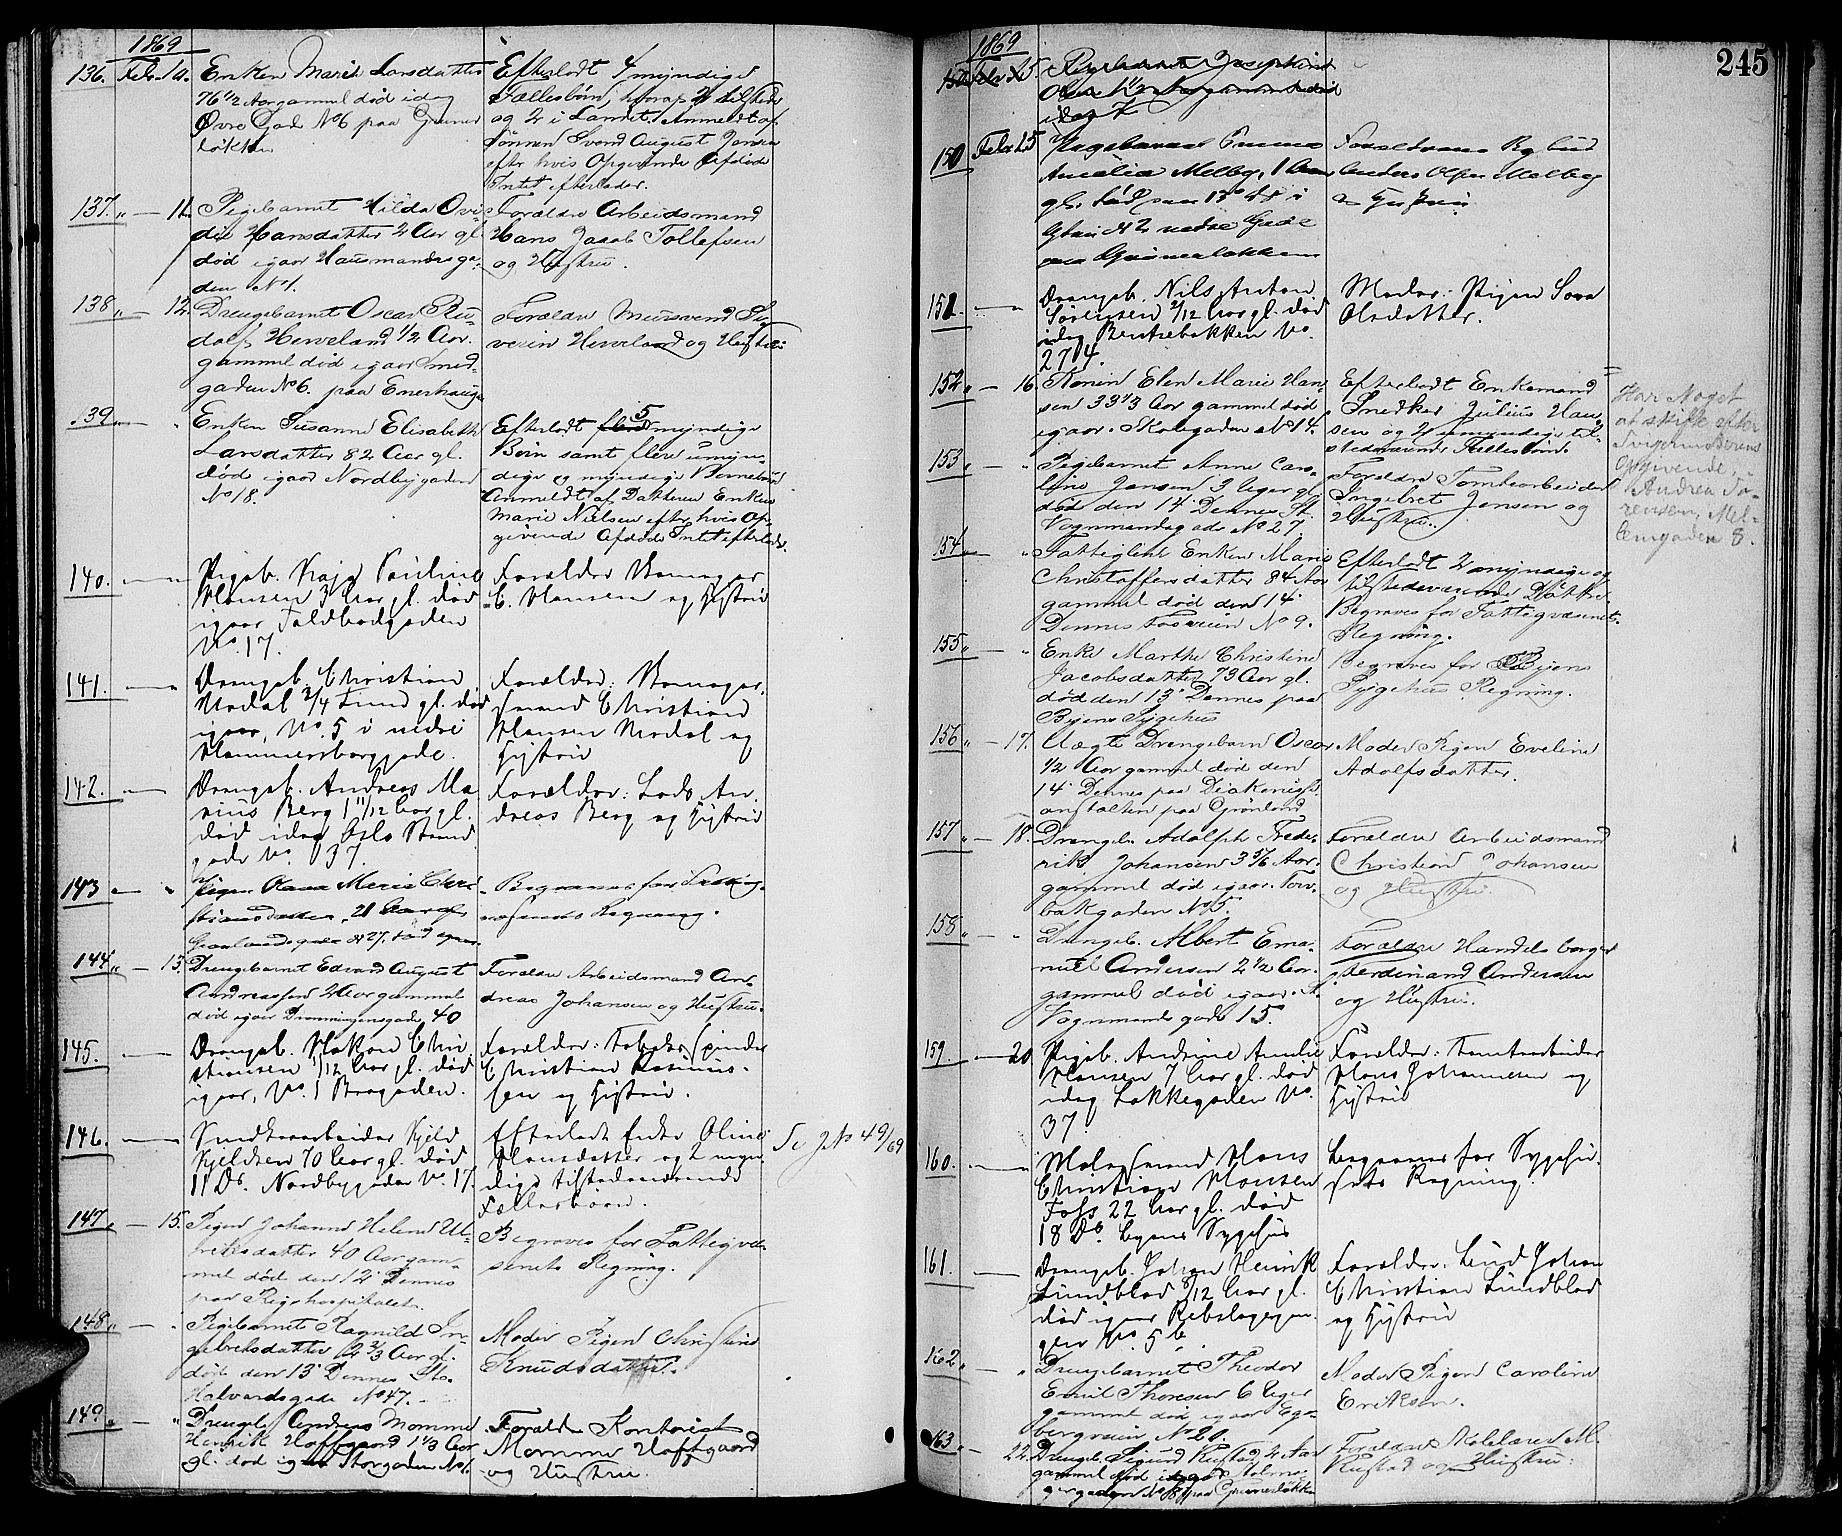 1869
136. Febr. 10. Enken Marie Larsdatter
76 1/2 Aar gammel død idag
Øvre Gade No 6 paa Grüner
løkken
Efterlodt 4 myndige
Fællesbørn, hvoraf 2 tilstede
og 2 i Landet. Anmeldt af
Sønnen Svend August Jensen
efter hvis Opgivende Afdøde
Intet efterlader.
137. " — 11. Pigebarnet Hilda Ovi-
die Hansdatter 2 Aar gl.
død igaar Hausmandsga-
den No 1.
Forældre Arbeidsmand
Hans Jacob Tollefsen
og Hustru.
138. " — 12. Drengebarnet Oscar Ru-
dolf Herveland 1/2 Aar
gammel død igaar Smed-
gaden No 6. paa Enerhaugen
Forældre Muursvend Se-
verin Herveland og Hustru
139. Enken Susanne Elisabeth
Larsdatter 82 Aar gl.
død igaar Nordbygaden
No 18.
Efterlodt 5 myndige
Børn samt flere umyn-
dige og myndige Børnebørn
Anmeldt af Datteren Enken
Marie Nielsen efter hvis Op-
givende Afdøde Intet efterlader.
140. — " Pigeb. Kaja Pauline
Hansen 3 Aar gl. død
igaar Toldbodgaden
No. 17.
Forældre
C. Hansen og Hustru
141. — " Drengeb. Christian
Modal 3/4 Time gl. død
igaar, No. 5 i nedre
Hammersborggade.
Forældre:
Christian
Hansen Modal og
Hustru
142. — " Drengeb. Andreas Ma
rius Berg 1 11/12 Aar gl.
død idag Oslo Strand
gade No. 37.
Forældre: Lods An-
dreas Berg og Hustru
143 — " Pigen Marie Chri-
stiansdatter, 21 Aar gl.
Grønlandsgade No 27, død igaar
Begraves for
Regning.
144. " — 13. Drengebarnet Edvard August
Andreassen 2 Aar gammel
død igaar Dronningensgade 40
Forældre Arbeidsmand An-
dreas Johansen og Hustru.
145. — " Drengeb. Hakon Chri
stiansen 1/12 Aar gl. død
igaar, No. 1 Brogaden.
Forældre: Fabrikspinder
Christian Rasmus-
sen og Hustru.
146. — " Kjeld
Kjeldsen 70 Aar gl. død
11 Ds. Nordbygaden No. 17.
Efterlodt Enke Oline
Hansdatter og 2 myn
dige tilstedeværende
Fællesbørn.
Se J. No 49/69
147. " — 15. Pigen Johanne Helene Ul-
riksdatter 40 Aar gam-
mel død den 12' Dennes
paa Rigshospitalet.
Begraves for Fattigvæ-
senets Regning.
148. " — " Pigebarnet Ragnild In-
gebretsdatter 2 2/3 Aar gl.
død den 13' Dennes St.
Halvardsgade No 47.
Moder Pigen Christine
Knudsdatter.
149. " — " Drengeb. Andreas Momme
Henrik Hoffgaard 1 1/3 Aar
gl. død igaar Storgaden No 6.
Forældre Kontorist
Momme Hoffgaard
og Hustru.
245
1869
Febr 15 Pigebarnet Josephine
150 Febr 15 Pigebarnet Emma
Amalia Melby, 1 Aar
gl. død
No 2 nedre Gade
paa Grünerløkken
Forældrene
Anders Olsen Melby
og Hustru
151. — " Drengeb. Nils Anton
Sørensen 2/12 Aar gl. død
idag Bentsebakken No.
274.
Moder: Pigen Sara
Olsdatter.
152. " — 16. Konen Elen Marie Han-
sen 33 1/3 Aar gammel død
igaar. Skolegaden No 14.
Efterlodt Enkemand
Snedker Julius Han-
sen og 2 umyndige til-
stedeværende Fællesbørn.
Har Noget
at skifte efter
Svigermoderens
Opgivende,
Andrea So-
rensen, Mel-
lemgaden 8.
153. " — " Pigebarnet Anne Caro-
line Jensen 3 Uger gl.
død den 14' Dennes St.
Vognmandsgade No 27
Forældre Tomtearbeider
Ingebret Jensen og
Hustru.
154. " — " Fattiglem Enken Maria
Christoffersdatter 84 Aar
gammel død den 14'
Dennes Fosveien No 9.
Efterlodt 2 myndige og
tilstedeværende Døttre
Begraves for Fattigvæsenets
Regning.
155. " — " Enke Marthe Christine
Jacobsdatter 73 Aar gl.
død den 13' Dennes paa
Byens Sygehus
Begraves for Byens
Sygehus Regning.
156 " — 17. Uægte Drengebarn Oscar
1/2 Aar gammel død den
14' Dennes paa Diakonisse-
anstalten paa Grønland
Moder Pigen Eveline
Adolfsdatter.
157 " — 18. Drengeb. Adolph Frede-
rik Johansen 3 5/6 Aar
gammel død igaar. Torv-
bakgaden No 5.
Forældre Arbeidsmand
Christian Johansen
og Hustru.
158 " — " Drengeb. Albert Ema-
nuel Andersen 2 1/2 Aar
gammel død igaar. St.
Vognmandsgade 15.
Forældre Handelsborger
Ferdinand Andersen
og Hustru.
159. — 20 Pigeb. Andrine Amalie
Hansen 7 Aar gl. død
idag Lakkegaden No.
37.
Forældre: Tomtearbeider
Hans Johannesen og
Hustru
160. — " Malersvend Hans
Christian Hansen
Foss 22 Aar gl. død
18 Ds. Byens Sygehus
Begraves for Sygehu-
sets Regning.
161. — " Drengeb. Johan Henrik
Lundblad 8/12 Aar gl.
død igaar Rebslagergan
gen No. 5 b.
Forældre: Johan
Christian Lundblad
og Hustru
162 " — " Drengebarnet Theodor
Emil Thoresen 6 Uger
gammel død igaar Ege-
bergveien No 20.
Moder Pigen Caroline
Eriksen.
163 " — 22. Drengeb. Sigurd Rustad 2 Aar
gammel død igaar
gergaden No 8 paa Grünerløkken
Forældre M.
Rustad og Hustru.